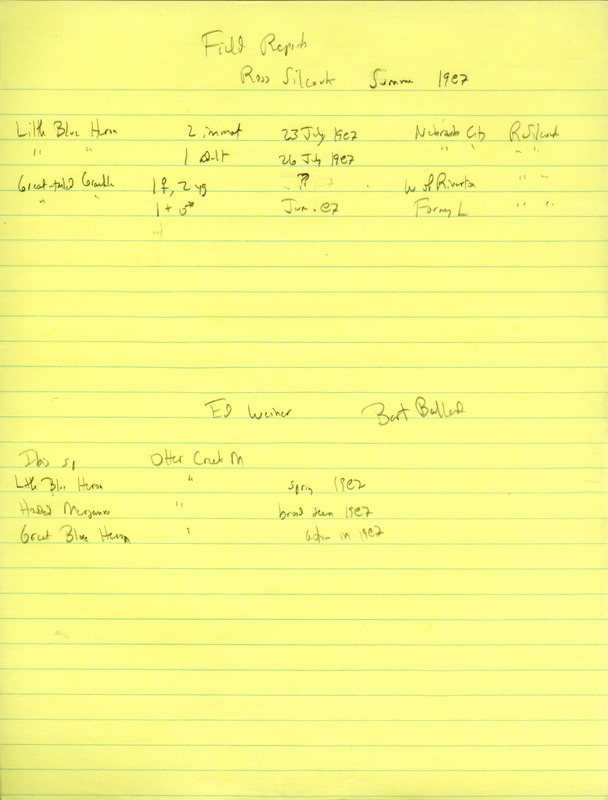 Field Reports
Ross Silcock Summer 1987
Little Blue Heron 2 immat 23 July 1987 Nebraska City R Silcock
" " 1 adult 26 July 1987 " " " "
Great-tailed Grackle 1 ♀, 2 yg ? W of Riverton " "
" " 1 + ♂ Jun. 87 Forney L " "
Ed Weiner Bart Ballard
Ibis sp Otter Creek M
Little Blue Heron " spring 1987
Hooded Merganser " brood seen 1987
Great Blue Heron " in 1987